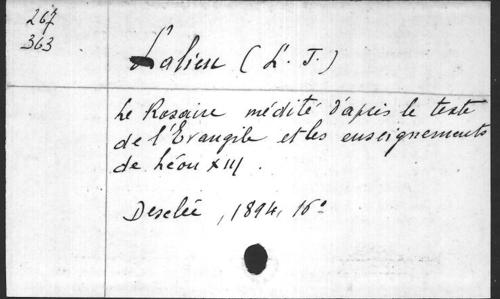 267
363
Lalieu (L. J.)
Le Rosaire médité d'après le texte
de l'Évangile et les enseignements
de Léon XIII.
Desclée, 1894, 16°